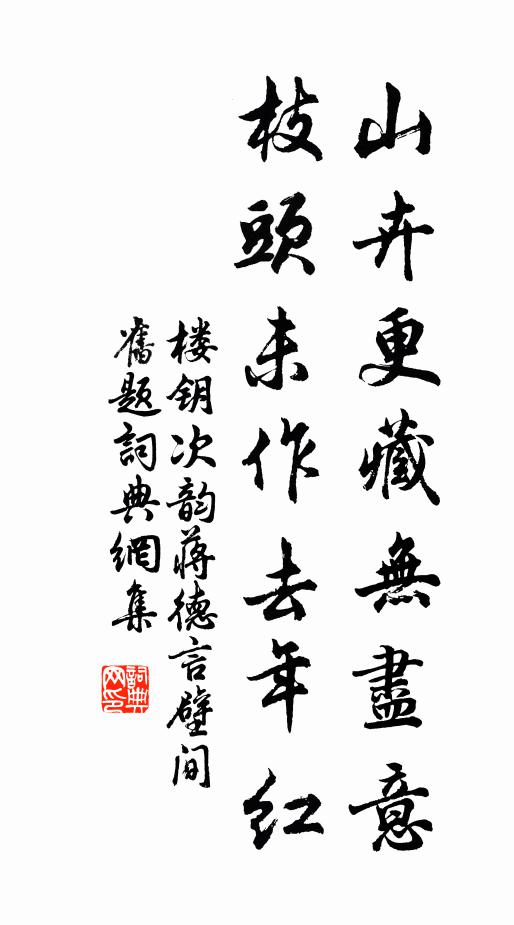 山卉更藏無盡意
枝頭未作去年紅
楼钥次韵蒋德言壁间
舊题詞典網集
詞典网印